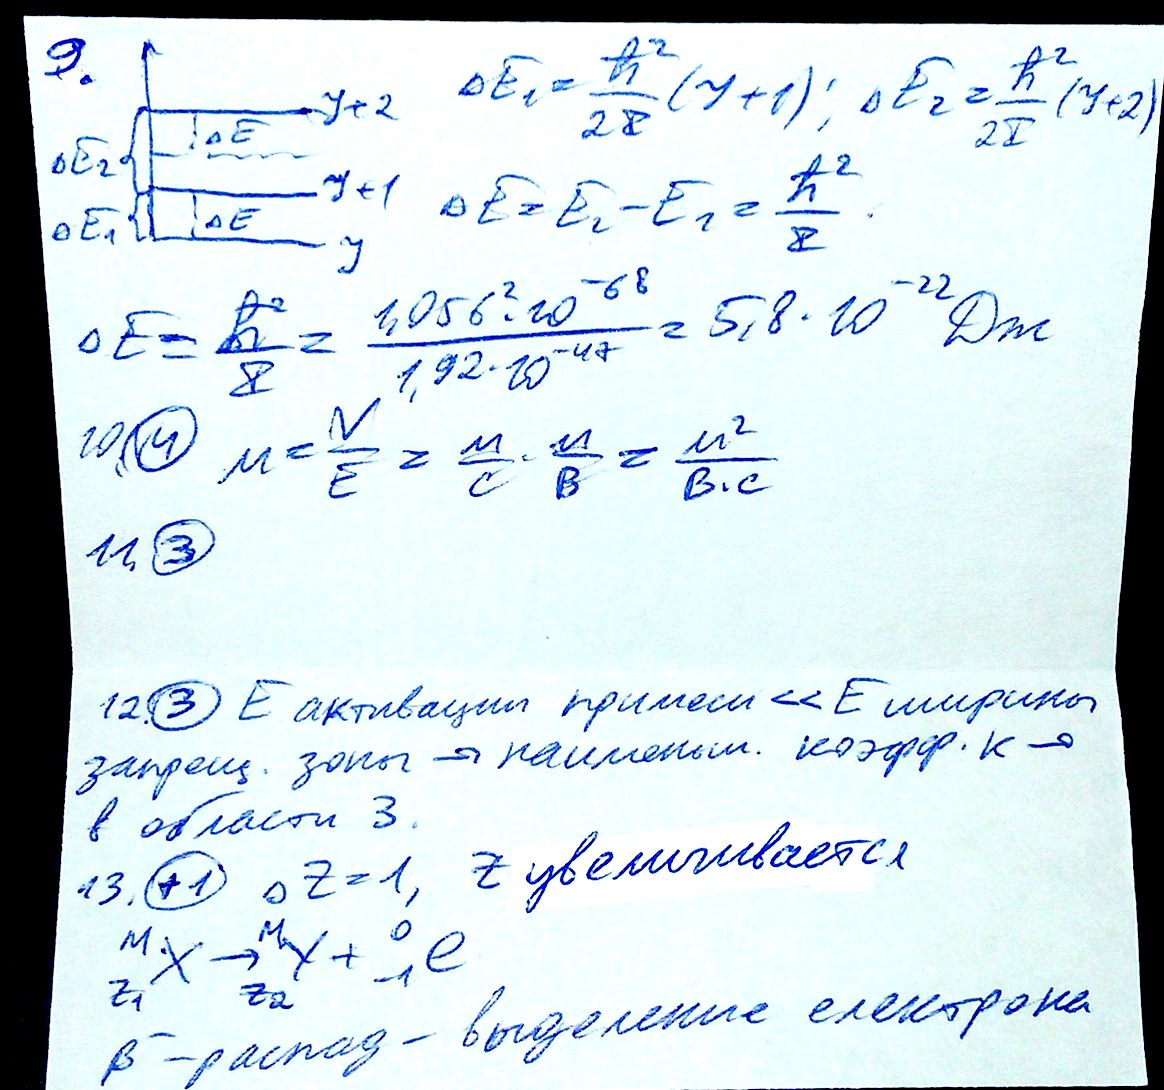 9.
ΔE₁ = ħ²/2I (J+1); ΔE₂ = ħ²/2I (J+2)
J+2
ΔE
ΔE₂
J+1
ΔE₁
ΔE
J
ΔE = E₂ - E₁ = ħ²/I.
ΔE = ħ²/I = 1,056²·10⁻⁶⁸/1,92·10⁻⁴⁷ = 5,8·10⁻²² Дж
10. 4 м = V/E = м/с · м/В = м²/В·с
11. 3
12. 3 E активации примеси << E ширины
запрещ. зоны → наименьш. коэфф. к →
в области 3.
13. +1 ΔZ = 1, Z увеличивается
ᴹz₁X → ᴹz₂Y + ⁰₋₁e
β⁻ - распад - выделение електрона